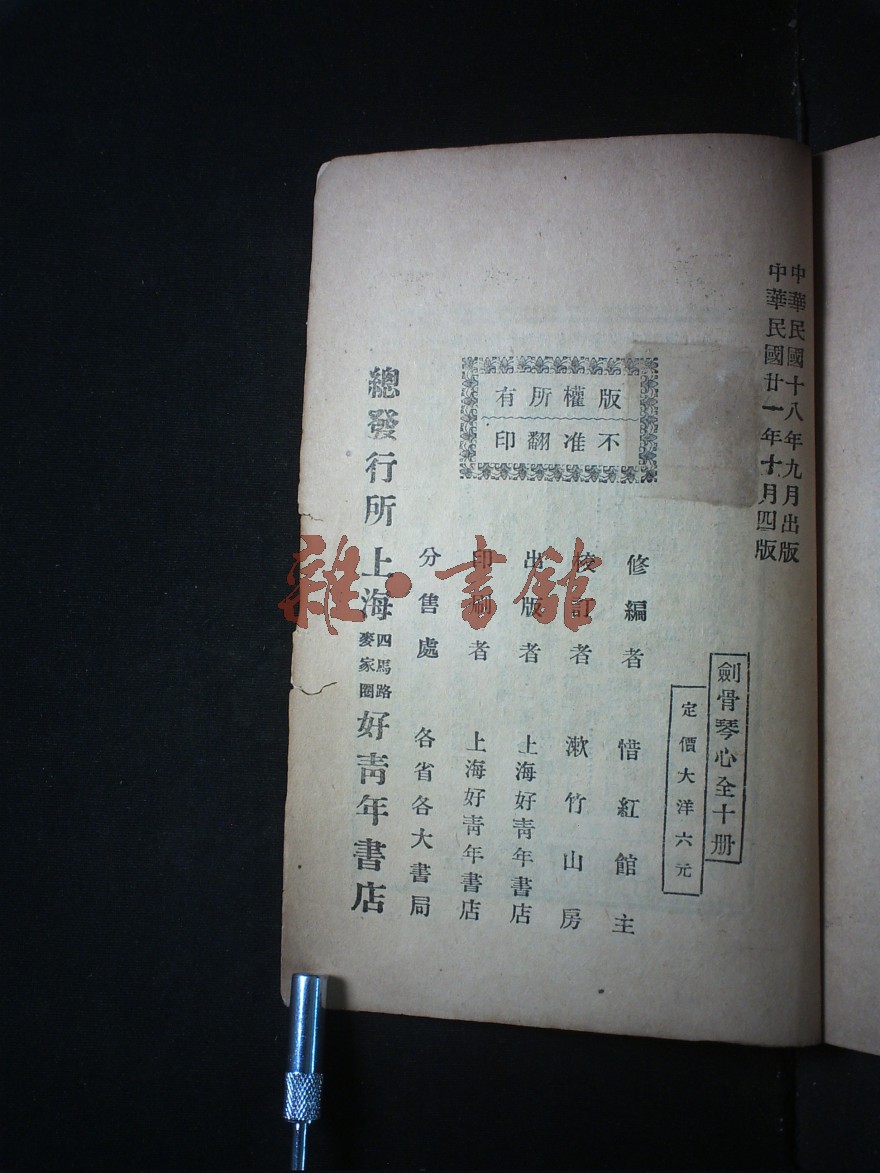 中華民國十八年九月出版
中華民國廿一年十月四版
劍骨琴心全十册
定價大洋六元
版權所有
不准翻印
修編者 惜紅館主
校訂者 漱竹山房
出版者 上海好靑年書店
印刷者 上海好靑年書店
分售處 各省各大書局
總發行所 上海 四馬路 麥家圈 好靑年書店
雜·書館